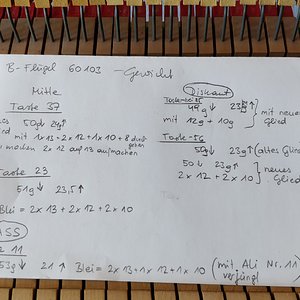 B-Flügel 60103 - Gewicht
Mitte
Taste 37
50g↓ 24↑
mit 1x13 + 2x12 + 1x10 + 8
machen 2x 12 auf 13 aufmachen
Taste 23
51g↓ 23,5↑
Blei = 2x 13 + 2x 12 + 2x 10
ASS
11
53g↓ 21↑ Blei = 2x13+1x12+1x10 (mit Ali Nr. 11
verjüngt
Diskant
49g↓ 23g↑
mit 12g + 10g
mit neues Glied
Taste 56
50g↓ 23g↑ (altes Glied
50↓ 23g↑
2x12 + 2x10
neues Glied